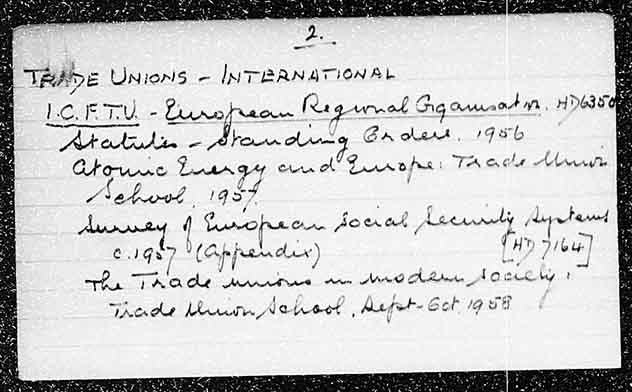 2.
TRADE UNIONS - INTERNATIONAL
I.C.F.T.U. - European Regional Organisation. HD6350
Statutes - Standing Orders. 1956
Atomic Energy and Europe: Trade Union
School, 1957.
Survey of European Social Security Systems
c.1957 (Appendix) [HD 7164]
The Trade unions in modern society;
Trade Union School, Sept-Oct 1958